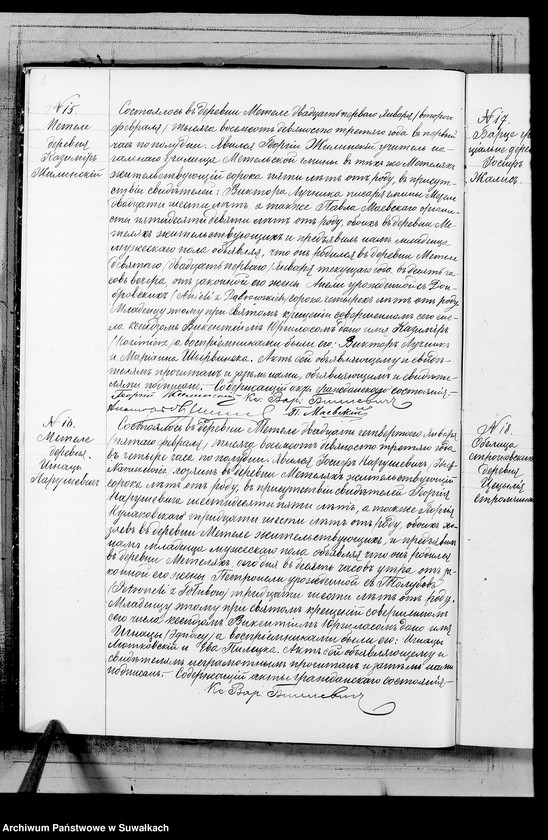 № 15.
Метеле
деревня
Казимѣръ
Жилинскій
Состоялось въ деревни Метеле двадцать перваго Января /втораго
февраля/ тысяча восемсотъ девяносто третяго года въ первый
часъ по полудни. Явился Георгій Жилинскій учитель на-
чальнаго училища Метельской гмины въ тѣхъ же Метеляхъ
жительствующій сорока пяти лѣтъ отъ роду, въ присут-
ствіи свидѣтелей: Виктора писаря гмины
двадцати шести лѣтъ а также Павла Маевскаго органи-
ста пятидесяти девяти лѣтъ отъ роду, обоихъ въ деревни Ме-
теляхъ жительствующихъ и предъявилъ намъ младенца
мужескаго пола объявляя, что онъ родился въ деревни Метеле
девятаго /двадцать перваго/ Января текущаго года въ десять ча-
совъ вечера, отъ законной его жены Анели урожденной съ Дом-
бровскихъ /Anieli z Dąbrowskich/ сорока четырехъ лѣтъ отъ роду.
Младенцу этому при святомъ крещеніи совершенномъ сего чис-
ла ксендзомъ Викентіемъ дано имя Казимѣръ
/Kazimierz/ а воспріемниками были его: Викторъ
и Маріанна Актъ сей объявляющему и свидѣ-
телямъ прочитанъ и затѣмъ нами, объявляющимъ и свидѣте-
лями подписанъ. Содержащій акты гражданскаго состоянія.—
Георгій Жилинскій Кс. Вар:
П. Маевскій
№ 16.
Метеле
деревня.
Игнацы
Нарушевичъ
Состоялось въ деревни Метеле двадцать четвертаго Января
/пятаго февраля/ тысяча восемсотъ девяносто третяго года
въ четыре часа по полудни. Явился Госифъ Нарушевичъ,
хозяинъ въ деревни Метеляхъ жительствующій
сорока лѣтъ отъ роду, въ присутствіи свидѣтелей Георгія
Нарушевича шестидесяти пяти лѣтъ, а также Георгія
тридцати шести лѣтъ отъ роду, обоихъ хо-
зяевъ въ деревни Метеле жительствующихъ, и предъявилъ
намъ младенца мужескаго пола объявляя что онъ родился
въ деревни Метеляхъ сего дня въ десять часовъ утра отъ за-
конной его жены Петронели урожденной съ
/Petroneli z тридцати шести лѣтъ отъ роду.
Младенцу этому при святомъ крещеніи совершенномъ
сего числа ксендзомъ Викентіемъ дано имя
Игнацы /Ignacy/ а воспріемниками были его: Игнацы
и Ева Актъ сей объявляющему и
свидѣтелямъ неграмотнымъ прочитанъ и затѣмъ нами
подписанъ.— Содержащій акты гражданскаго состоянія—
Кс. Вар:
№ 17.
деревня
Госифъ
№ 18.
деревня
Archiwum Państwowe w Suwałkach